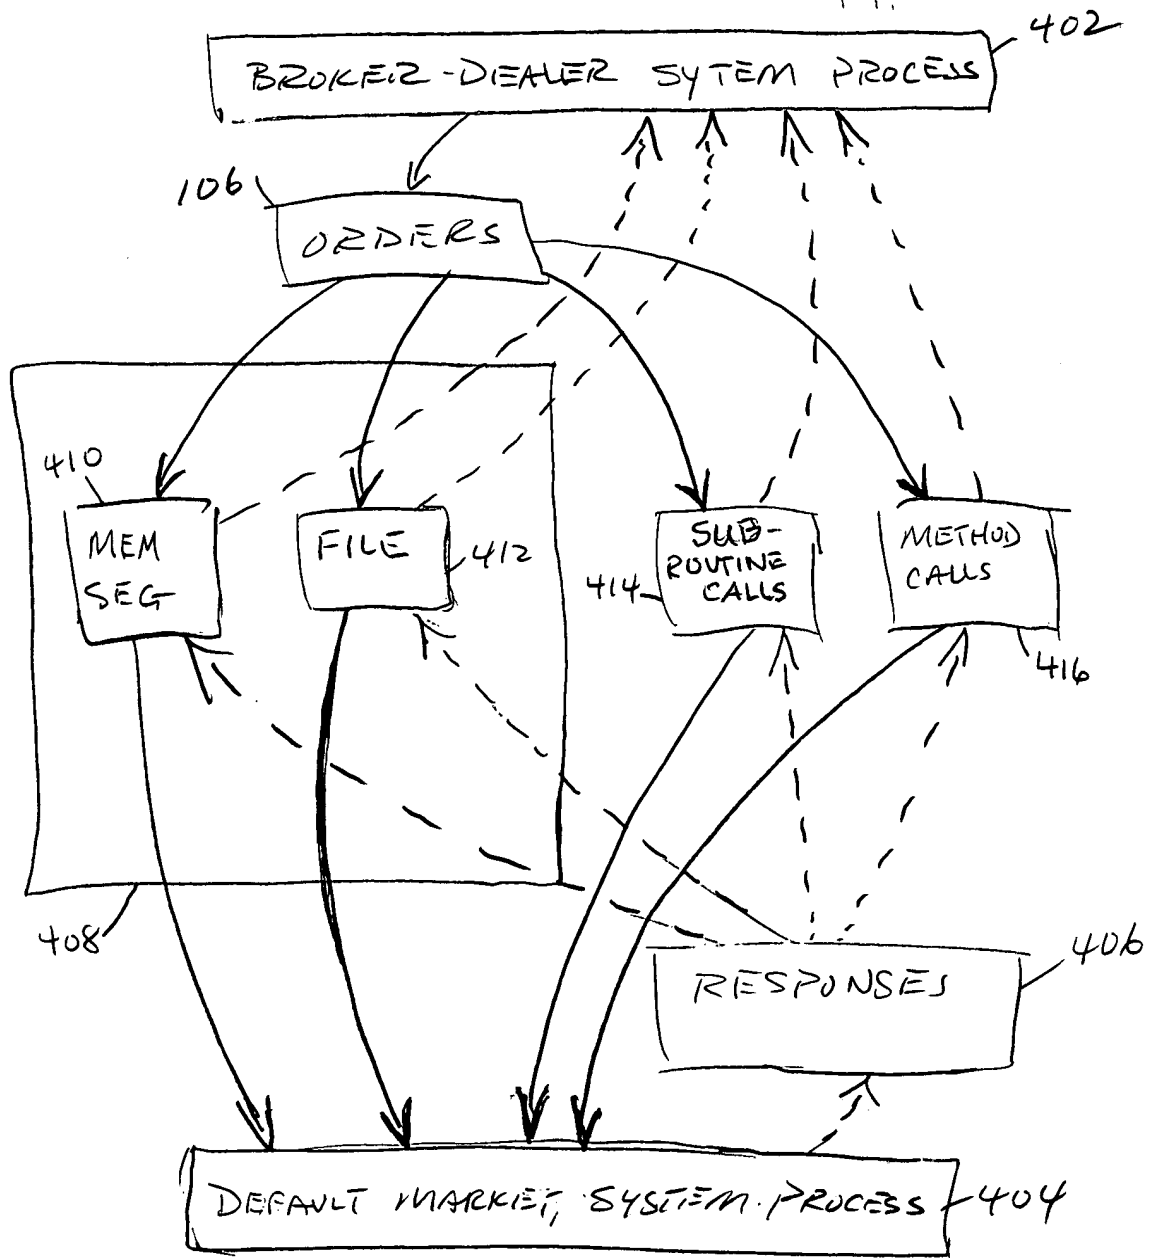 402
BROKER-DEALER SYTEM PROCESS
106
ORDERS
410
MEM
SEG
FILE
412
SUB-
ROUTINE
CALLS
414
METHOD
CALLS
416
408
406
RESPONSES
DEFAULT MARKET SYSTEM PROCESS
404